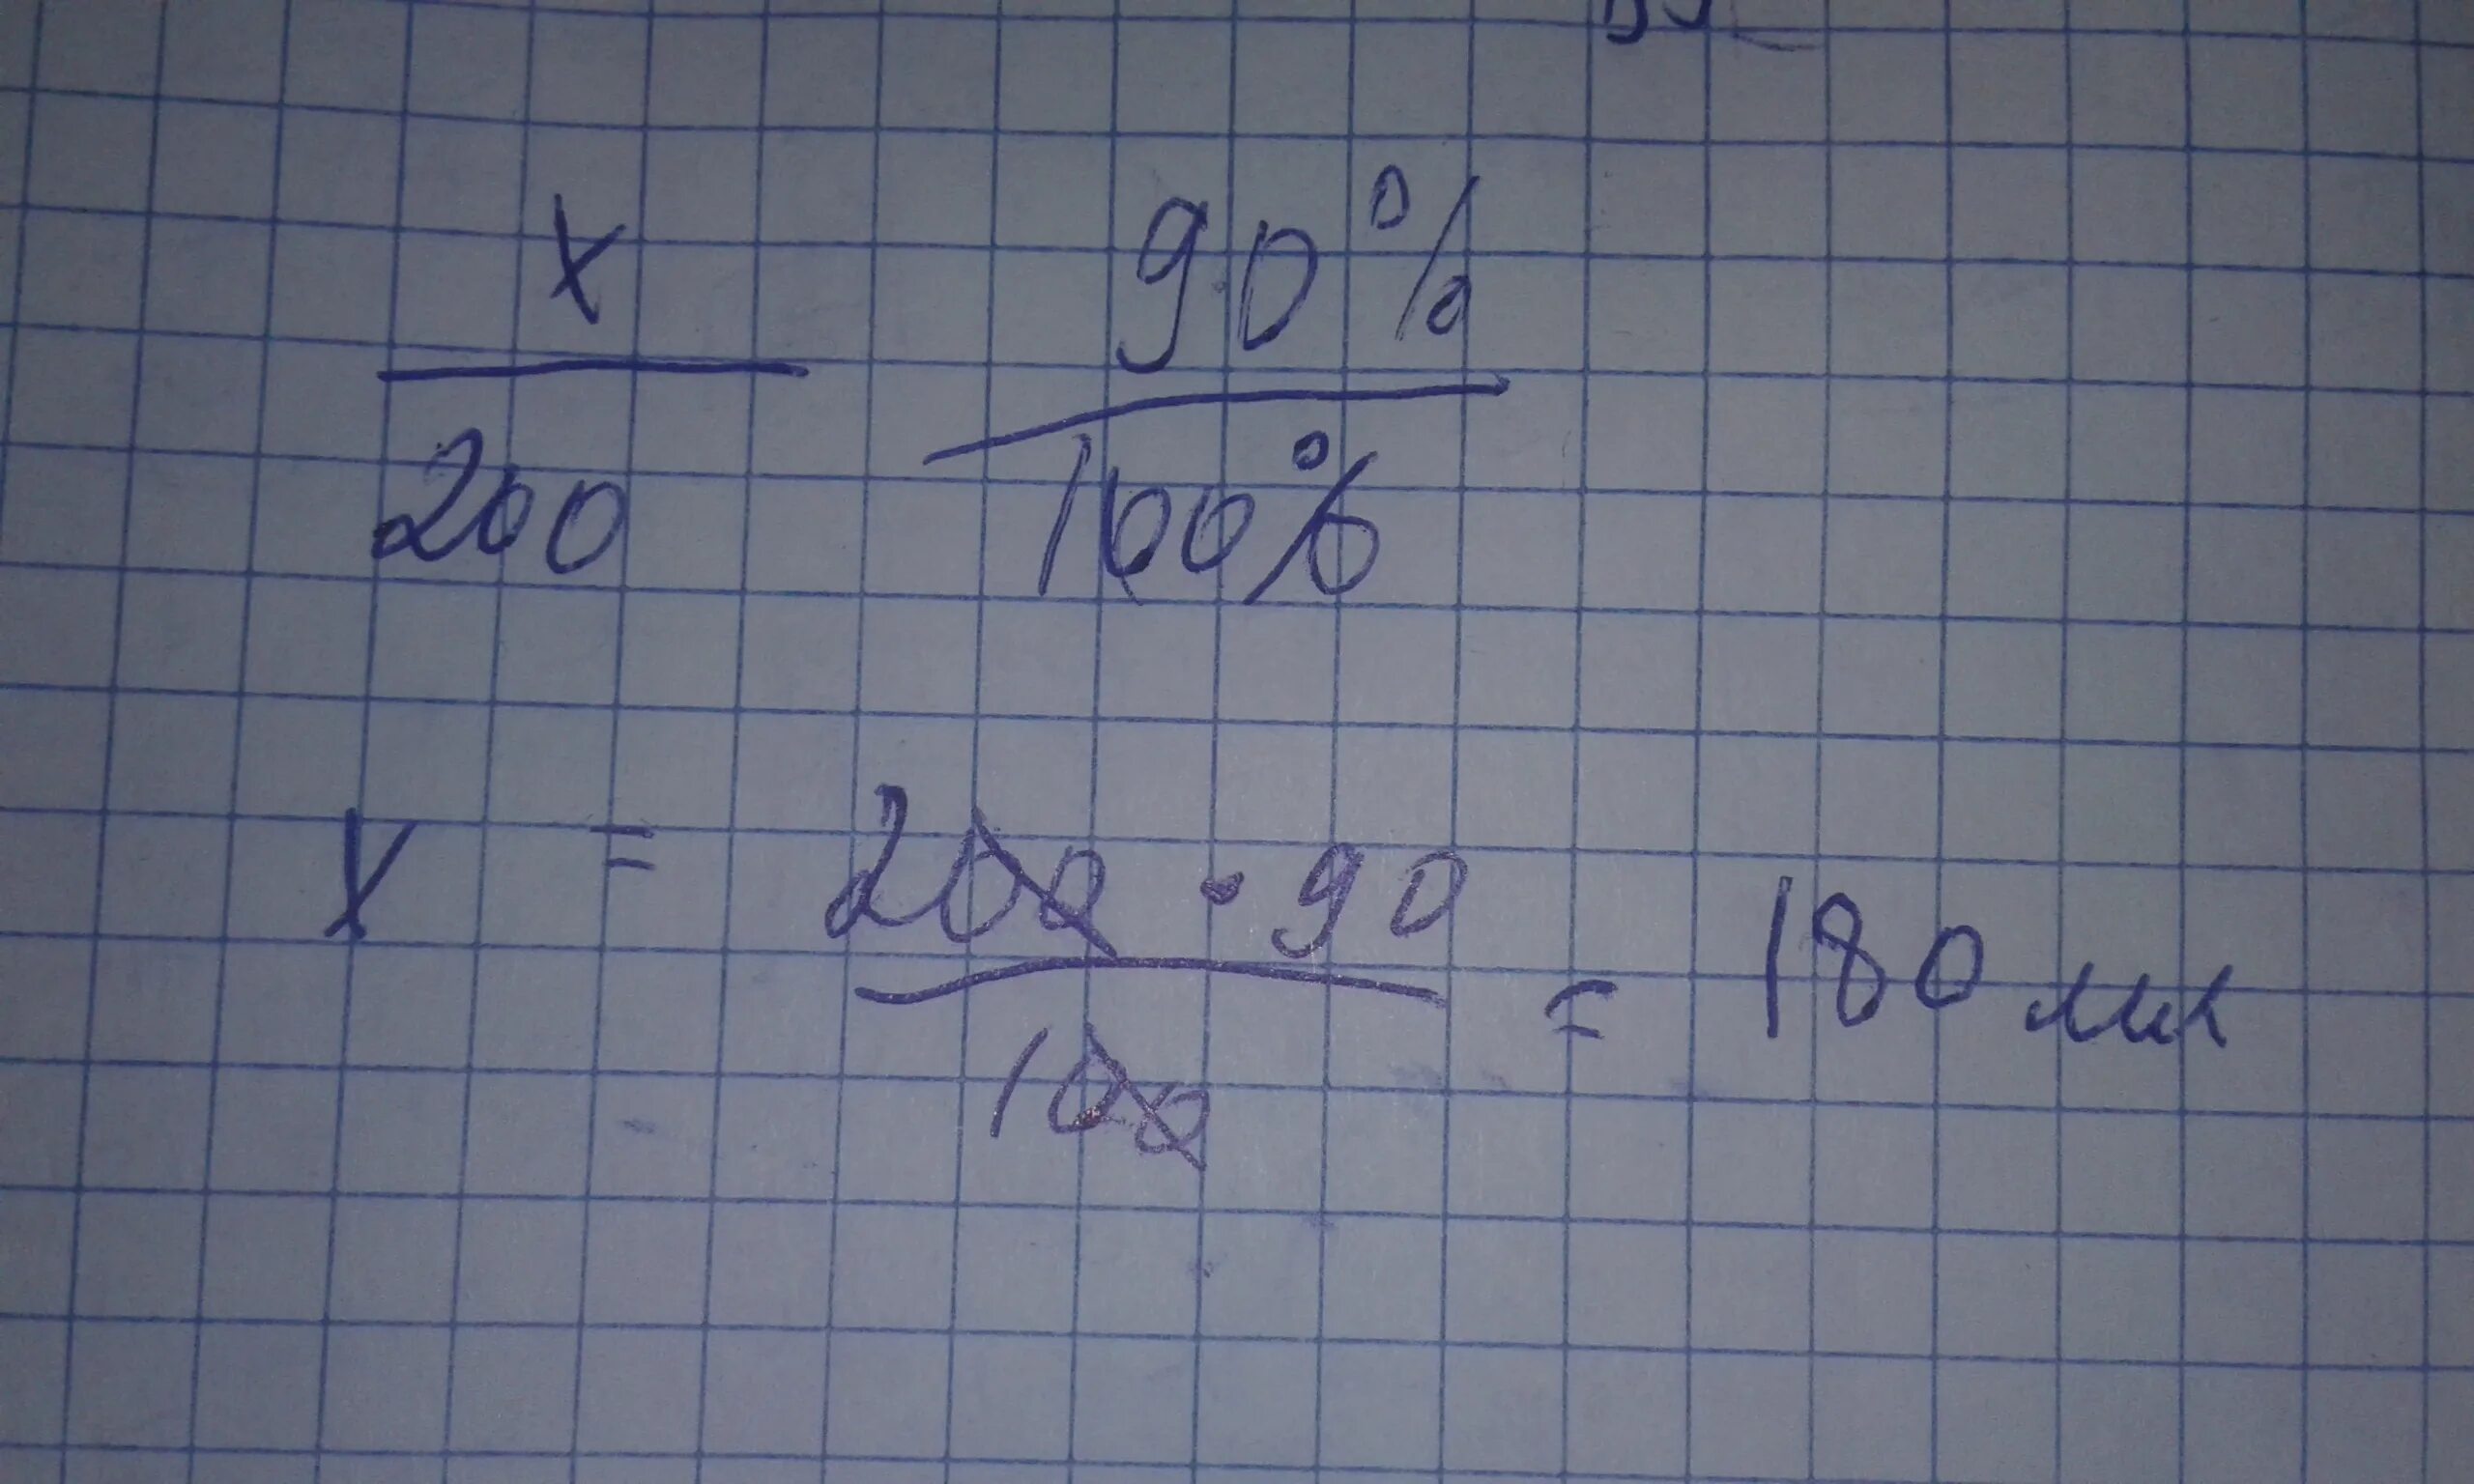 x 90%
200 100%
x = 200 · 90
100 = 180 мл